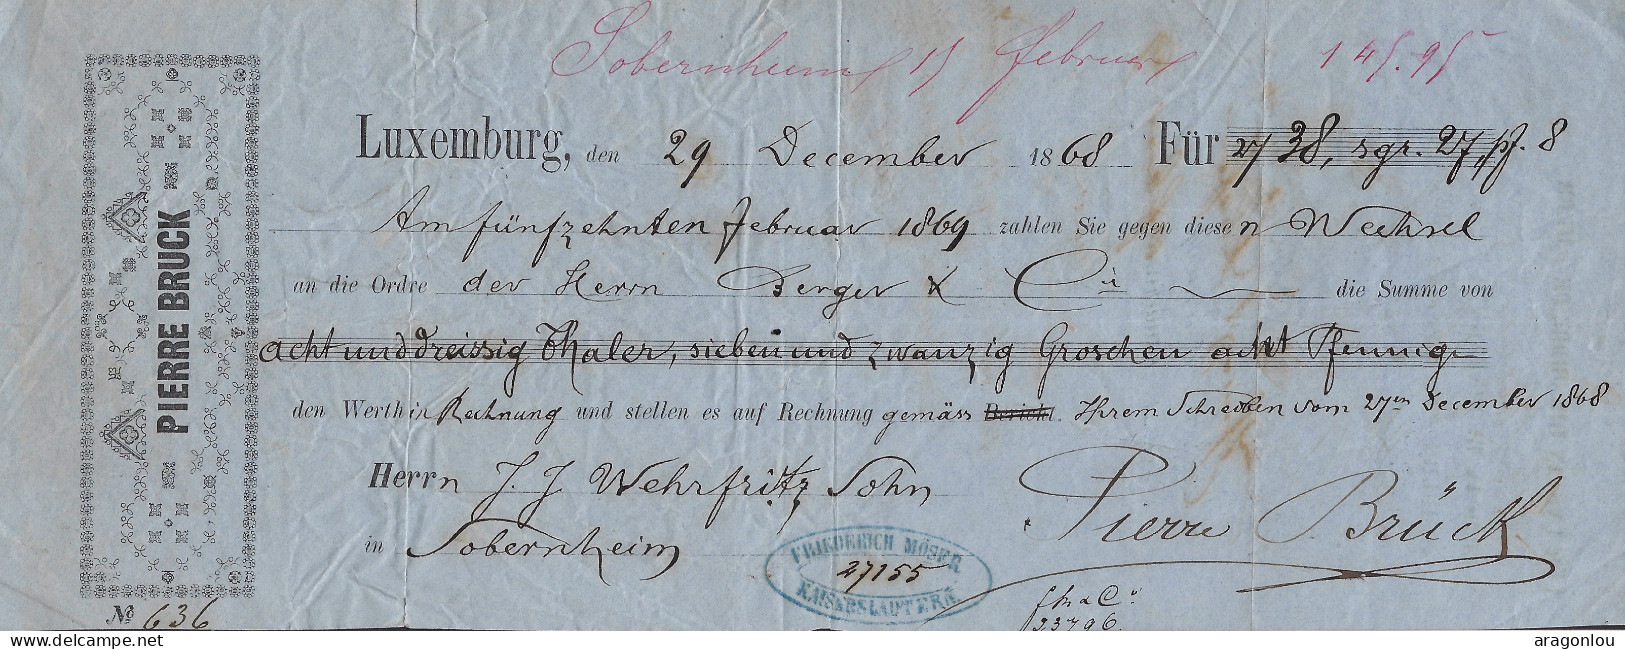 Sobernheim 15 Februar 145.95
Luxemburg, den 29 December 1868 Für 38, sgr. 27, pf. 8
Am fünfzehnten Februar 1869 zahlen Sie gegen diesen Wechsel
an die Ordre der Herrn Berger & Cie die Summe von
acht und dreissig Thaler, sieben und zwanzig Groschen acht Pfennige
den Werth in Rechnung und stellen es auf Rechnung gemäss Bericht. Ihrem Schreiben vom 27en December 1868
Herrn J. J. Wehrfritz Sohn
in Sobernheim
Pierre Brück
PIERRE BRUCK
FRIEDERICH MÖSER
27155
KAISERSLAUTERN
No 636
23796
delcampe.net
aragonlou